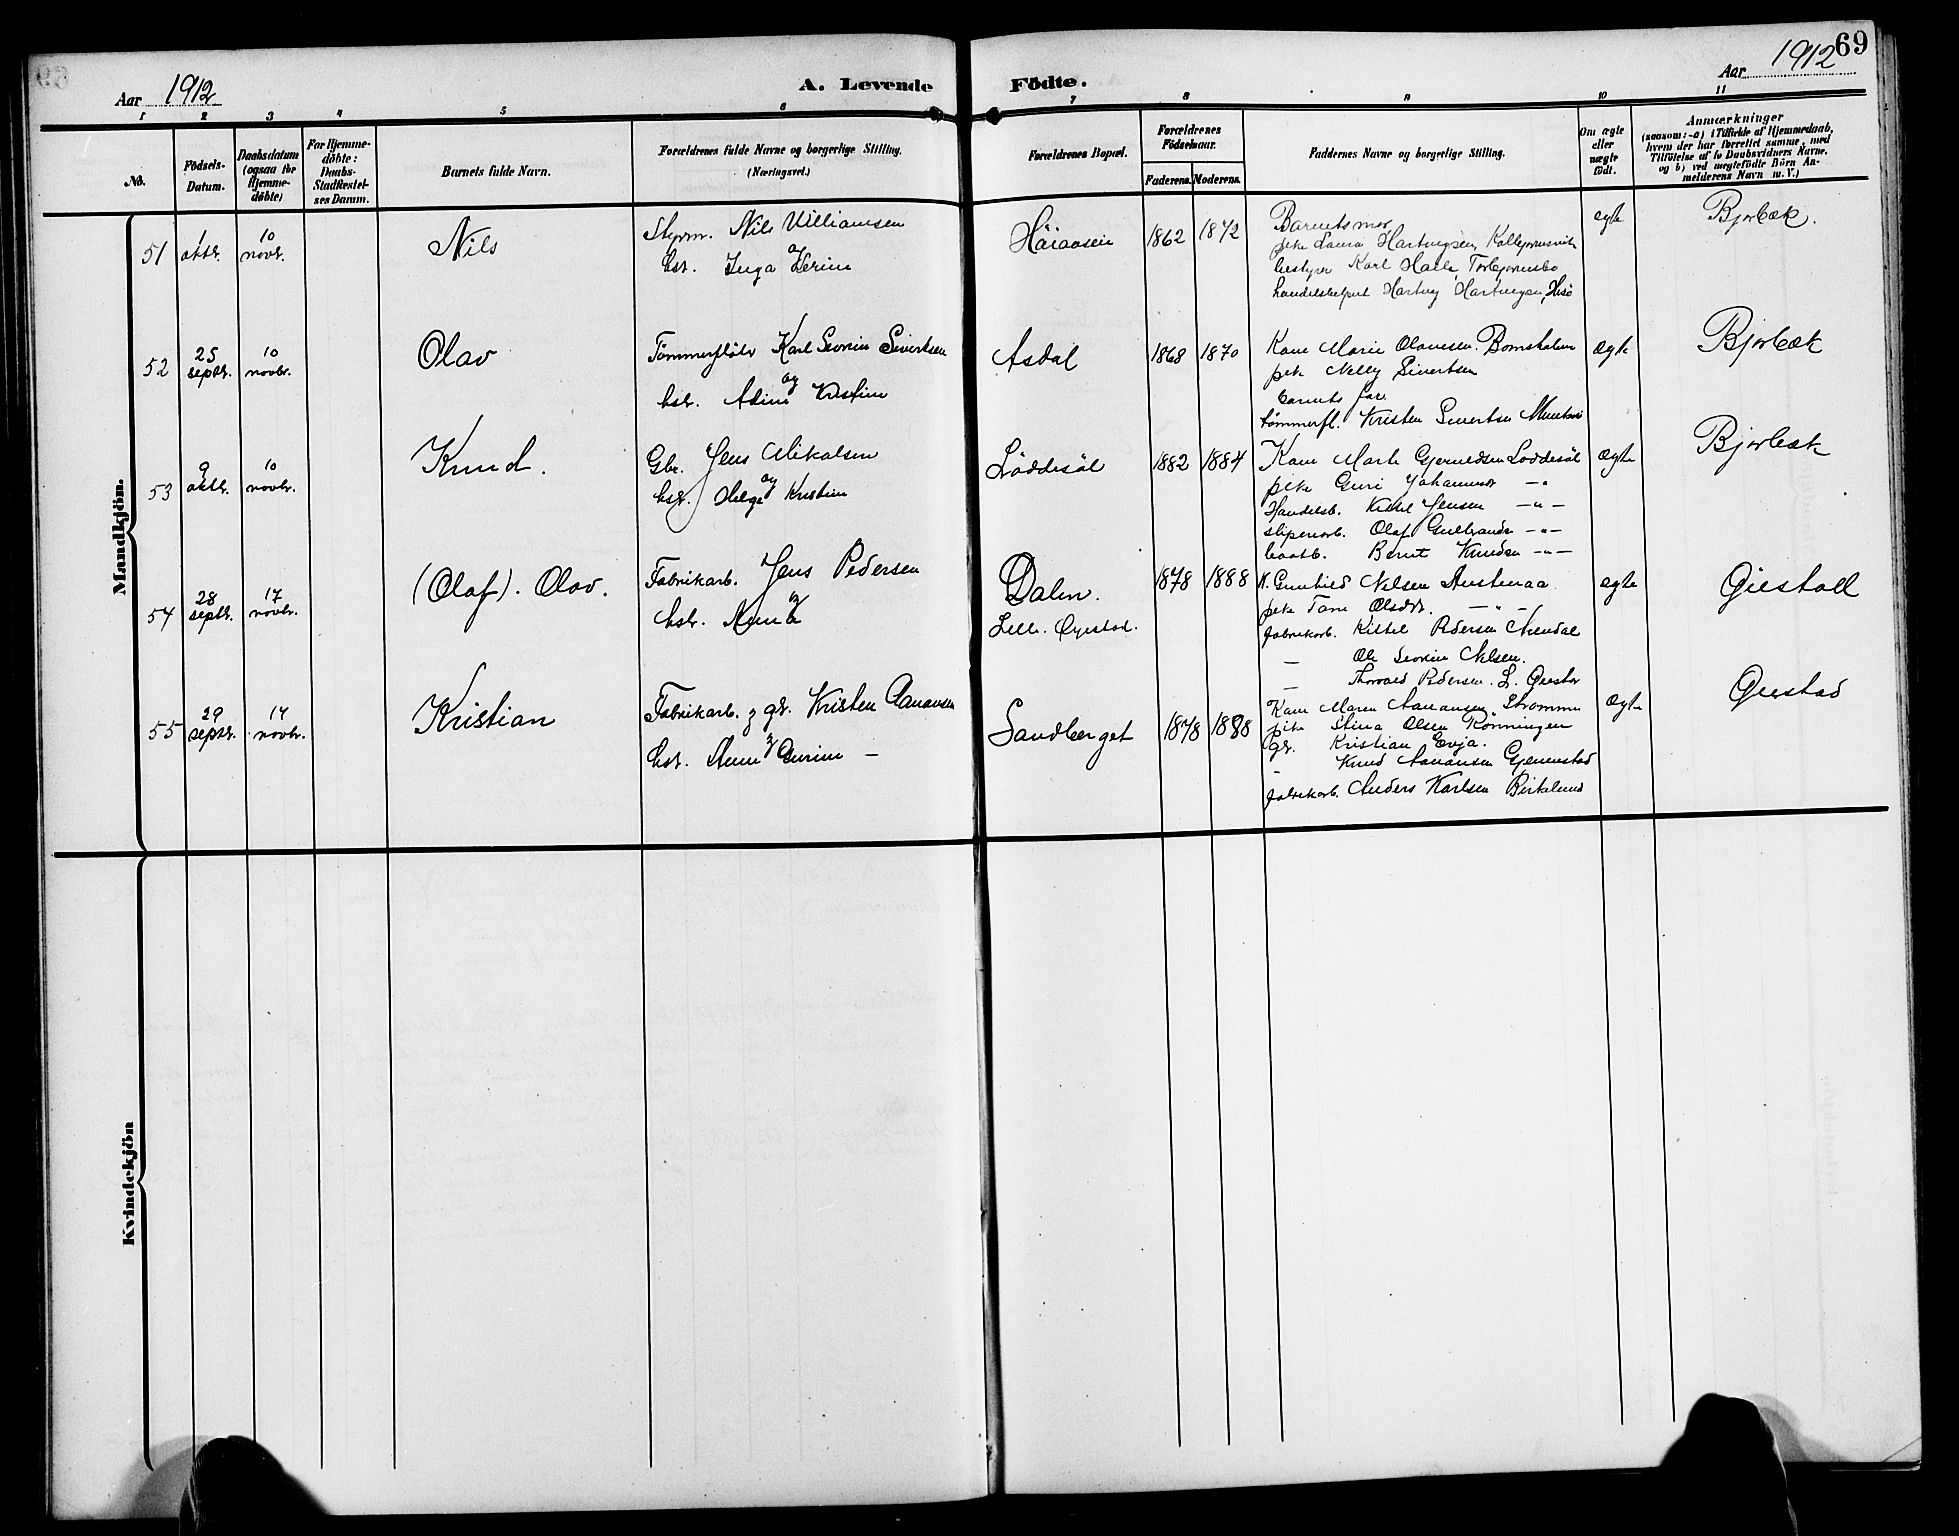 69
Aar 1912
A. Levende
Födte.
Aar 1912
1 2 3 4 5 6 7 8 9 10 11
No.
Födsels-
Datum.
Daabsdatum
(ogsaa for
Hjemme-
döbte)
For Hjemme-
döbte:
Daabs-
Stadfæstel-
ses Datum.
Barnets fulde Navn.
Forældrenes fulde Navne og borgerlige Stilling.
(Næringsvei.)
Forældrenes Bopæl.
Forældrenes
Födselsaar.
Faderens.
Moderens.
Faddernes Navne og borgerlige Stilling.
Om ægte
eller
uægte
födt.
Anmærkninger
(saasom: a) i Tilfælde af Hjemmedaab,
hvem der har forrettet samme, med
Tilföielse af to Daabsvidners Navne,
og b) ved uegtefödte Börn An-
melderens Navn m. V.)
Mandkjön.
51
1
oktr.
10
novbr.
Nils
Styrm. Nils Williamsen
og
hst. Inga
1862
1872
Barnets mor
pike Laura Hartvigsen,
bestyrer Karl
Hartvig Hartvigsen, Hisø
ægte
Bjorbæk.
52
25
septbr.
10
novbr.
Olav
Tømmerfløter Karl Severin Sivertsen
og
hstr. Adine Kristine
Asdal
1868
1870
Kone Marie
pike Nelly Sivertsen
barnets far
tømmerfl. Kristen Sivertsen
ægte
Bjorbæk
53
9
oktbr.
10
novbr.
Knud.
Gbr. Jens Mikalsen
og
hstr. Helga Kristine
Løddesøl
1882
1884
Kone Marte Gjeruldsen Loddesøl
pike Guri
Handelsb. Kittel Jensen — " —
Olaf — " —
Bernt Knudsen — " —
ægte
Bjorbæk
54
28
septbr.
17
novbr.
(Olaf). Olav.
Fabrikarb. Jens Pedersen
hstr. Anna
Dalen.
Lille. Øyestad.
1878
1888
K. Gunhild Nelsen Austenaa
pike Tone Olsdtr. — " —
fabrikarb. Kittel Pedersen Arendal
— Ole Severin Nelsen.
— Thorvald Pedersen.
ægte
55
29
septbr.
17
novbr.
Kristian
Fabrikarb. & gbr. Kristen Aanonsen
&
hst. Anne Gurine —
Sandberget
1878
1888
Kone Maren Aanonsen Strømmen
pike Stina Olsen Rønningen
gbr. Kristian Evja.
- Knud Aanonsen
fabrikarb. Anders Karlsen Birkelund
ægte
Øiestad
Kvindekjön